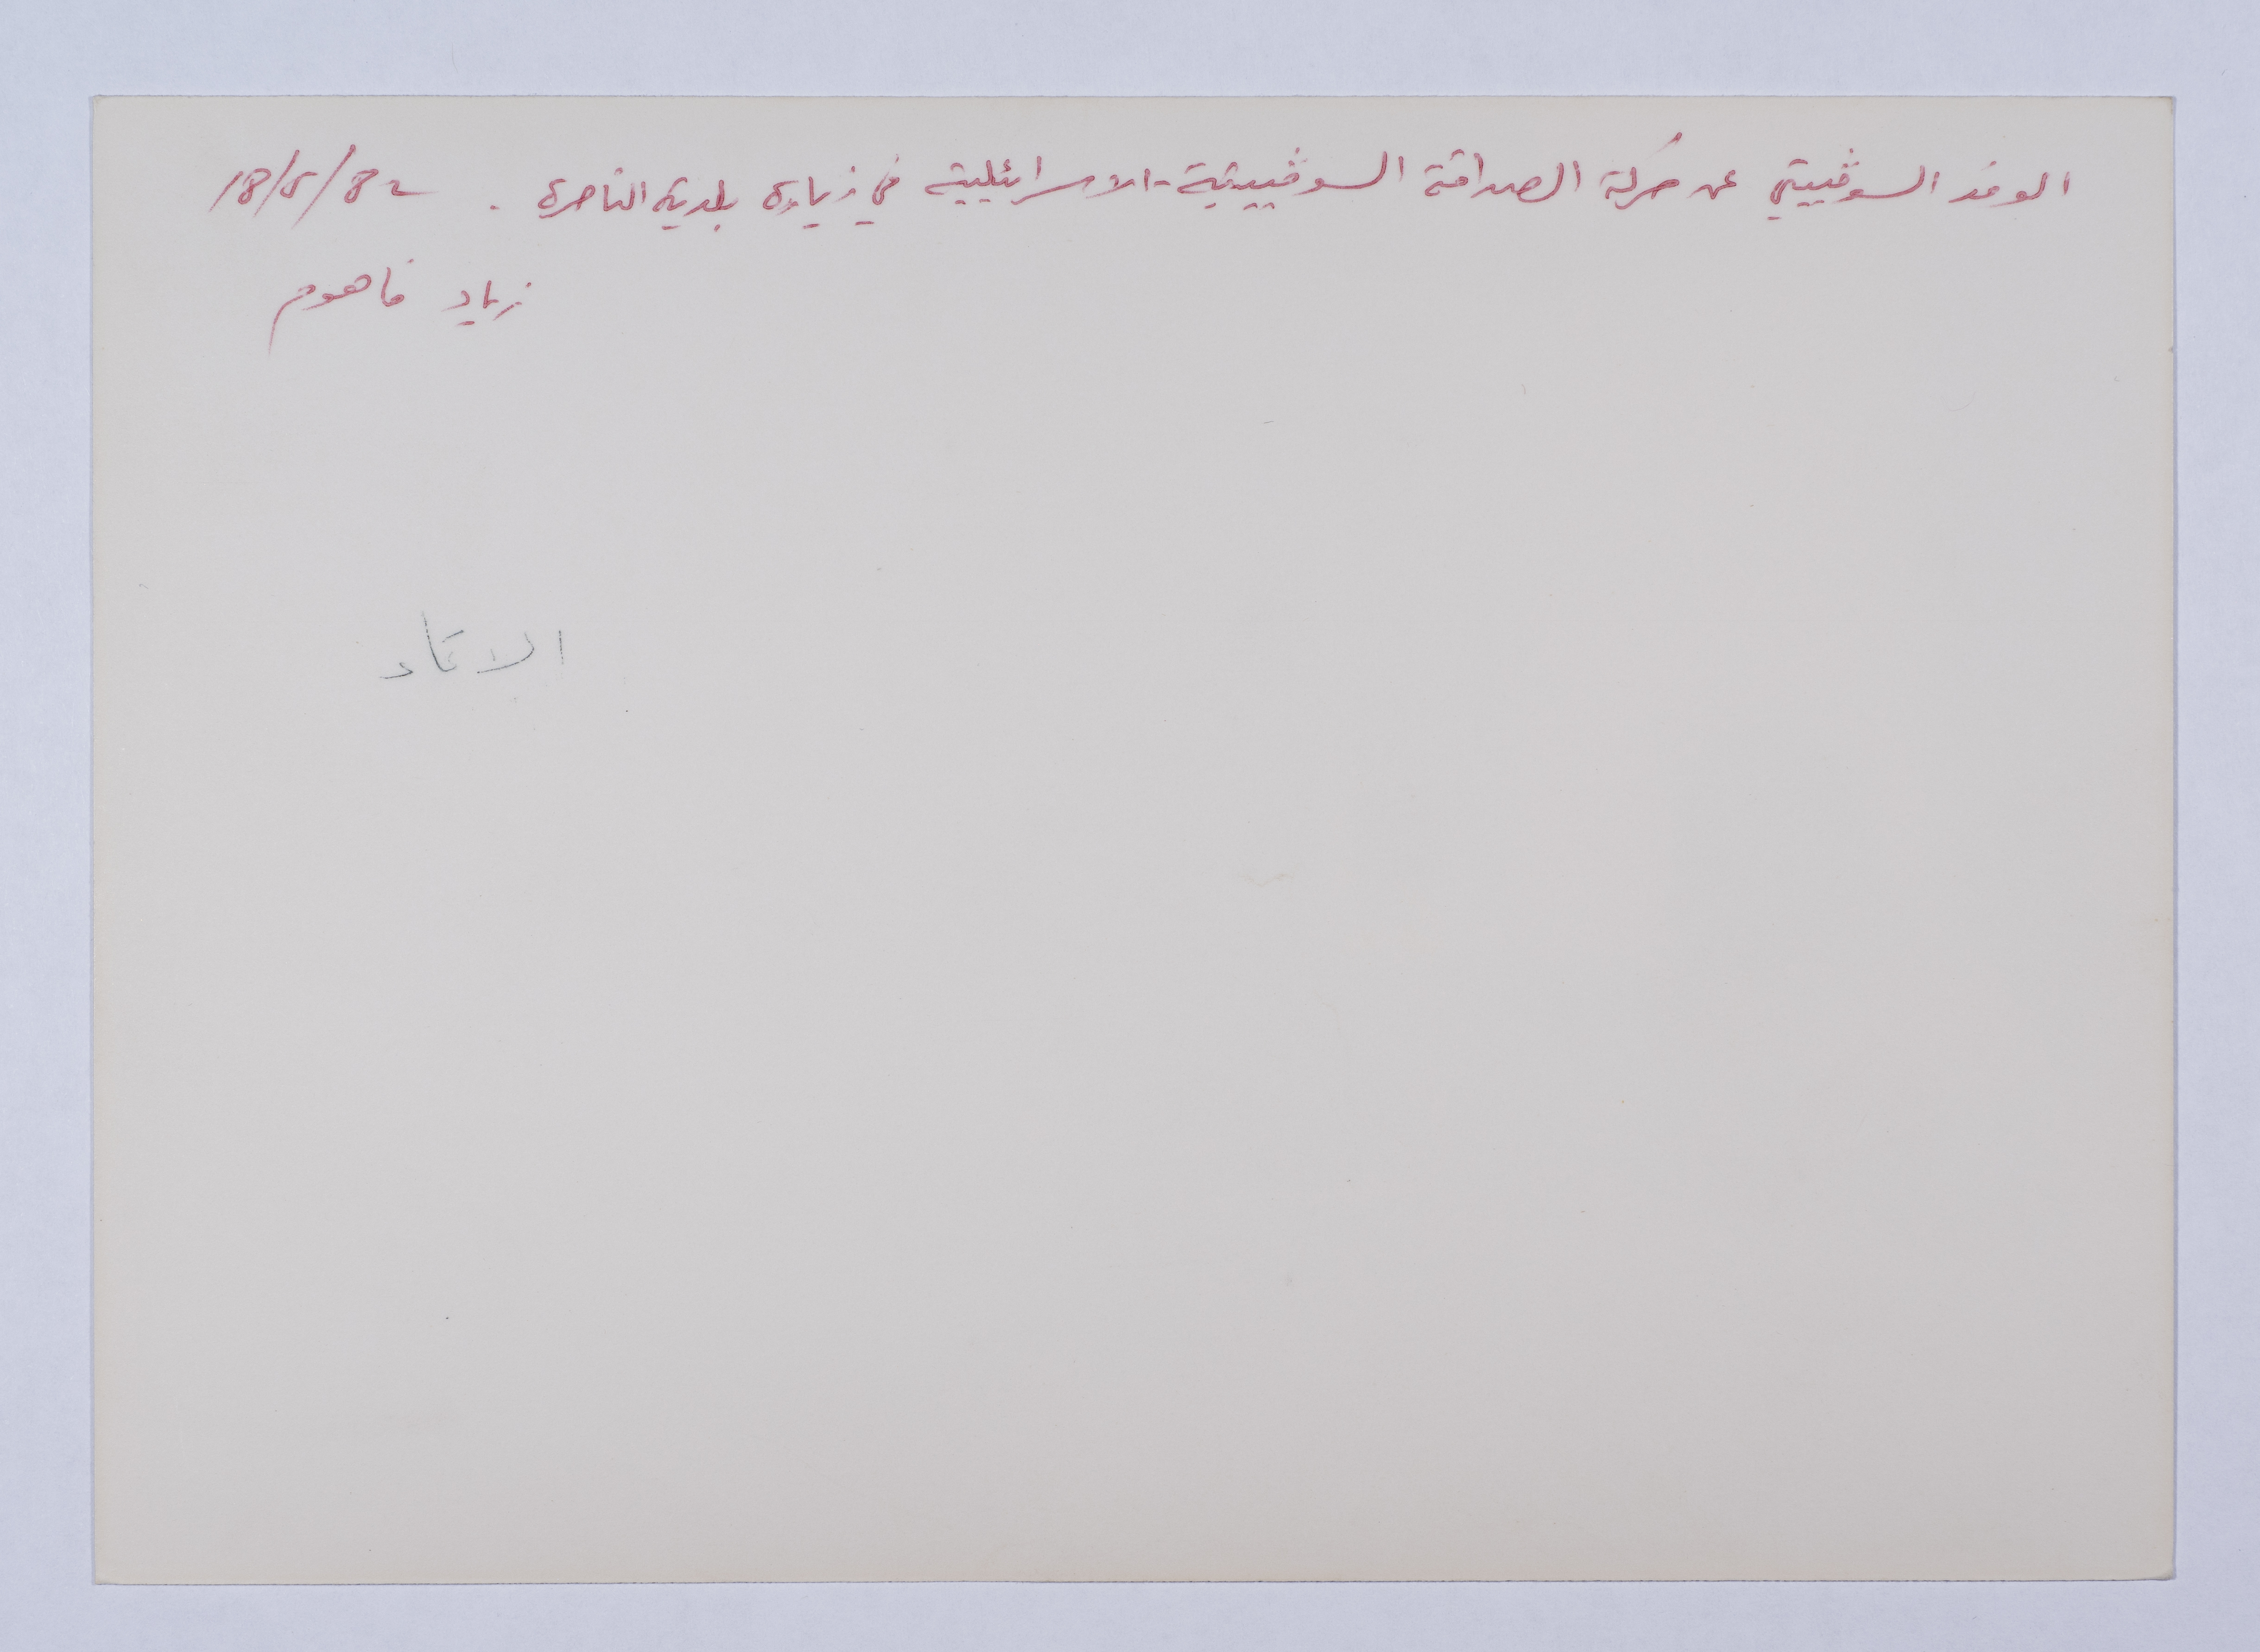 الوفد السوڤييتي عن حركة الصداقة السوڤييتية - الاسرائيلية في زيارة بلدية الناصرة . 18/5/82
زياد فاهوم
الاتحاد